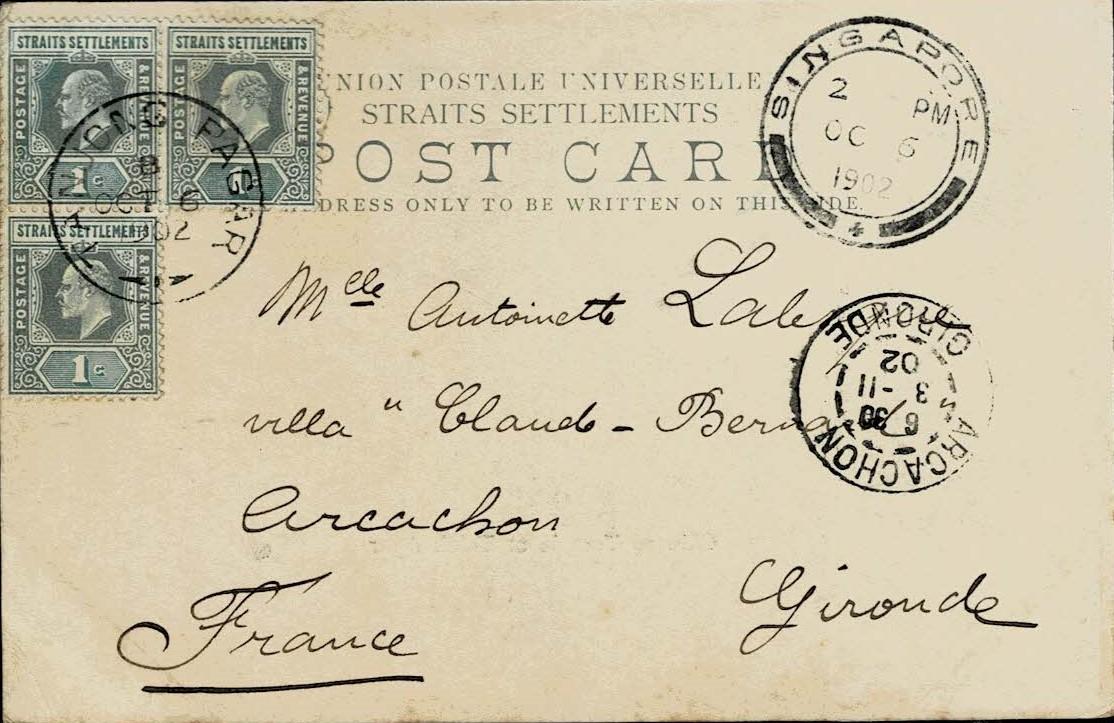 STRAITS SETTLEMENTS
POSTAGE
& REVENUE
1 C
STRAITS SETTLEMENTS
POSTAGE
& REVENUE
STRAITS SETTLEMENTS
POSTAGE
& REVENUE
1 C
TANJONG PAGAR
B
OCT 6
1902
UNION POSTALE UNIVERSELLE
STRAITS SETTLEMENTS
POST CARD
ADDRESS ONLY TO BE WRITTEN ON THIS SIDE.
SINGAPORE
2 PM
OC 6
1902
Mlle Antoinette
villa " Claude - Bernard
Arcachon
Gironde
France
ARCACHON
6 30
3 - 11
02
GIRONDE